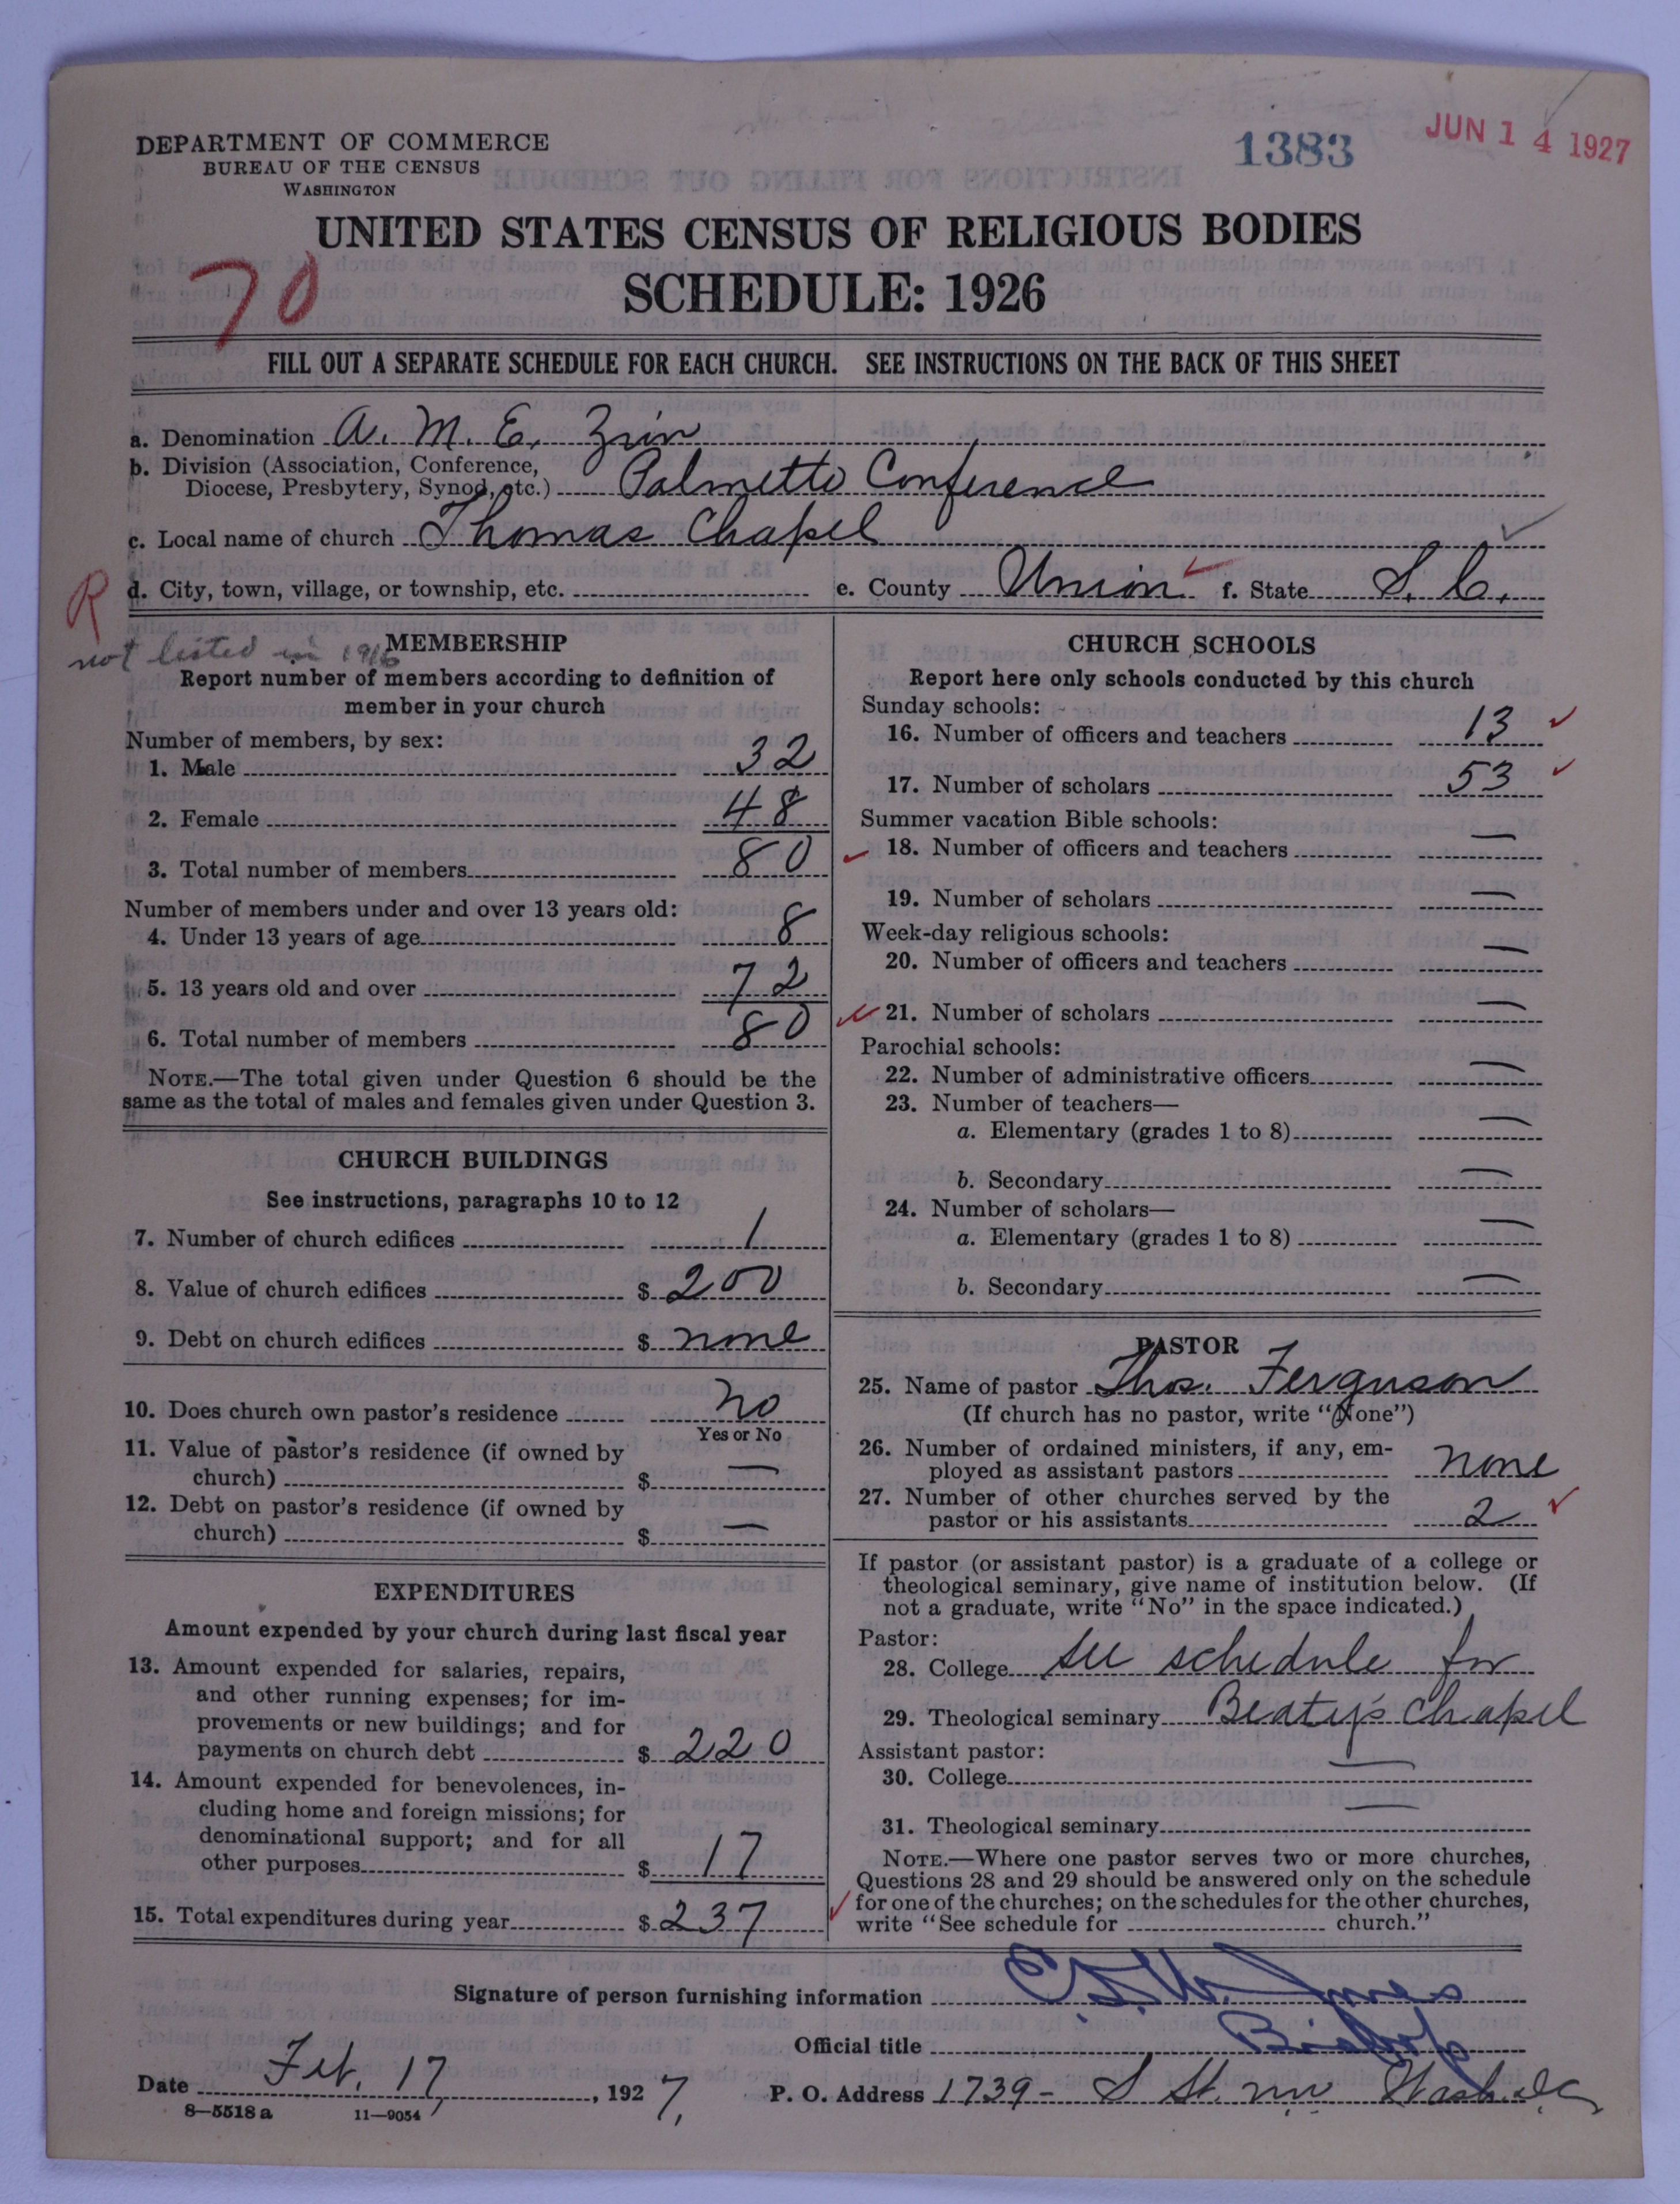 DEPARTMENT OF COMMERCE
BUREAU OF THE CENSUS
WASHINGTON
1383
JUN 14 1927
UNITED STATES CENSUS OF RELIGIOUS BODIES
SCHEDULE: 1926
70
FILL OUT A SEPARATE SCHEDULE FOR EACH CHURCH. SEE INSTRUCTIONS ON THE BACK OF THIS SHEET
a. Denomination A. M. E. Zion
b. Division (Association, Conference,
Diocese, Presbytery, Synod, etc.) Palmetto Conference
c. Local name of church Thomas Chapel
R
d. City, town, village, or township, etc. e. County Union f. State S. C.
not listed in 1916
MEMBERSHIP
Report number of members according to definition of
member in your church
Number of members, by sex:
1. Male 32
2. Female 48
3. Total number of members 80
Number of members under and over 13 years old:
4. Under 13 years of age 8
5. 13 years old and over 72
6. Total number of members 80
NOTE.—The total given under Question 6 should be the
same as the total of males and females given under Question 3.
CHURCH BUILDINGS
See instructions, paragraphs 10 to 12
7. Number of church edifices 1
8. Value of church edifices $ 200
9. Debt on church edifices $ none
10. Does church own pastor's residence No
Yes or No
11. Value of pastor's residence (if owned by
church) $ —
12. Debt on pastor's residence (if owned by
church) $ —
EXPENDITURES
Amount expended by your church during last fiscal year
13. Amount expended for salaries, repairs,
and other running expenses; for im-
provements or new buildings; and for
payments on church debt $ 220
14. Amount expended for benevolences, in-
cluding home and foreign missions; for
denominational support; and for all
other purposes $ 17
15. Total expenditures during year $ 237
CHURCH SCHOOLS
Report here only schools conducted by this church
Sunday schools:
16. Number of officers and teachers 13
17. Number of scholars 53
Summer vacation Bible schools:
18. Number of officers and teachers —
19. Number of scholars —
Week-day religious schools:
20. Number of officers and teachers —
21. Number of scholars —
Parochial schools:
22. Number of administrative officers —
23. Number of teachers—
a. Elementary (grades 1 to 8) —
b. Secondary —
24. Number of scholars—
a. Elementary (grades 1 to 8) —
b. Secondary —
PASTOR
25. Name of pastor Thos. Ferguson
(If church has no pastor, write "None")
26. Number of ordained ministers, if any, em-
ployed as assistant pastors none
27. Number of other churches served by the
pastor or his assistants 2
If pastor (or assistant pastor) is a graduate of a college or
theological seminary, give name of institution below. (If
not a graduate, write "No" in the space indicated.)
Pastor:
28. College See schedule for
29. Theological seminary Beaty's Chapel
Assistant pastor:
30. College —
31. Theological seminary —
NOTE.—Where one pastor serves two or more churches,
Questions 28 and 29 should be answered only on the schedule
for one of the churches; on the schedules for the other churches,
write "See schedule for church."
Signature of person furnishing information Jones
Official title Bishop
Date Feb. 17, 1927, P. O. Address 1739- S St. nw Wash. D.C.
8—5518 a 11—9054